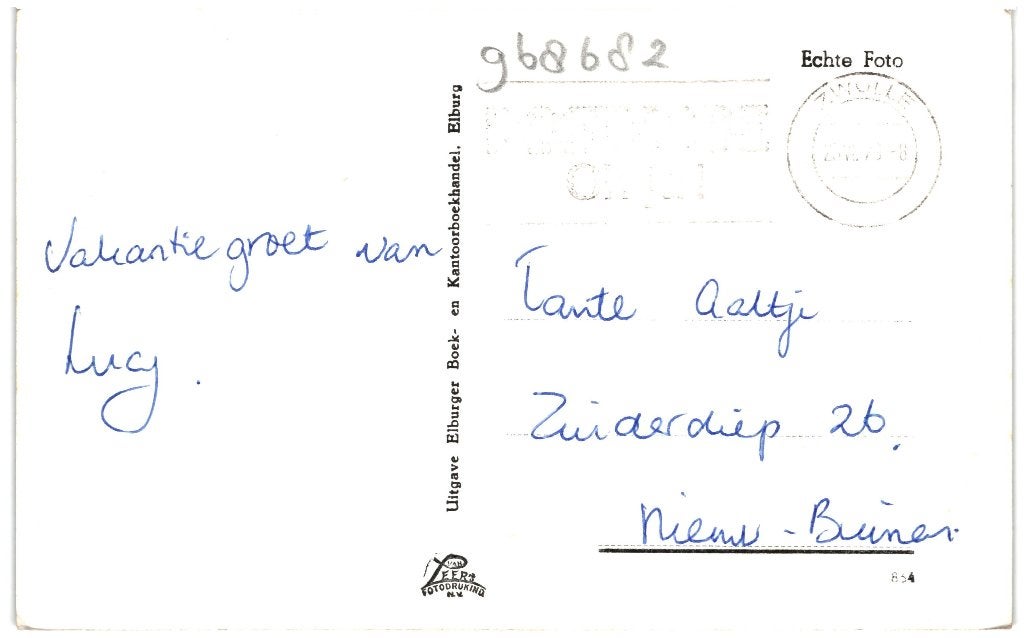 968682
Echte Foto
ZWOLLE
Vakantie groet van
Lucy.
Uitgave Elburger Boek- en Kantoorboekhandel, Elburg
Tante Aaltje
Zuiderdiep 26.
Nieuw-Buinen
VAN
LEER'S
FOTODRUKIND
N.V.
854